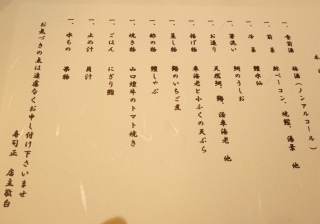 一、食前酒　梅酒(ノンアルコール)
一、前菜　鮭ベーコン、焼鯛、湯葉　他
一、冷菜　鯉水仙
一、箸洗い　鯛のうしお
一、お造り　天然鯛、鰆、活車海老　他
一、揚げ物　車海老と小ふくの天ぷら
一、蒸し物　鯛のいちご煮
一、酢の物　鱧しゃぶ
一、焼き物　山口煙牛のトマト焼き
一、ごはん　にぎり鮨
一、止め汁　貝汁
一、水もの　果物
お気づきの点は遠慮なくお申し付け下さいませ
寿司正　店主敬白